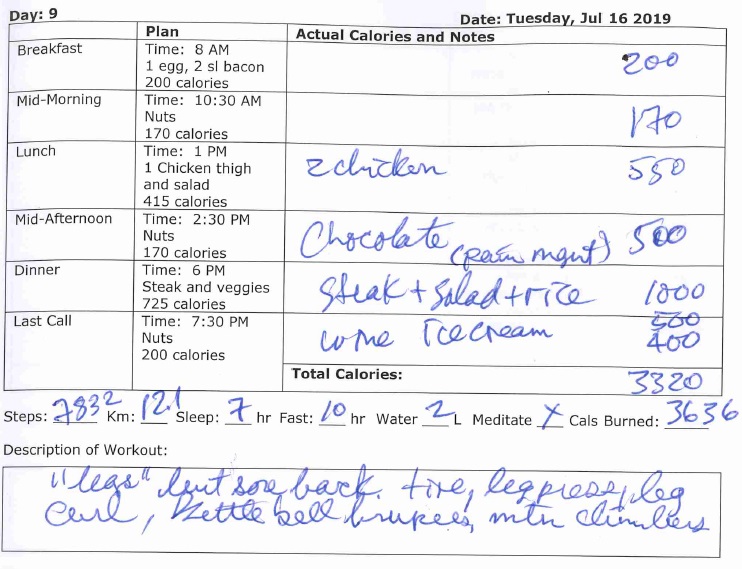 Day: 9
Date: Tuesday, Jul 16 2019
Plan
Actual Calories and Notes
Breakfast
Time: 8 AM
1 egg, 2 sl bacon
200 calories
200
Mid-Morning
Time: 10:30 AM
Nuts
170 calories
170
Lunch
Time: 1 PM
1 Chicken thigh
and salad
415 calories
2 chicken
550
Mid-Afternoon
Time: 2:30 PM
Nuts
170 calories
Chocolate (pain mgmt)
500
Dinner
Time: 6 PM
Steak and veggies
725 calories
Steak + Salad + rice
1000
Last Call
Time: 7:30 PM
Nuts
200 calories
wine Ice cream
500
400
Total Calories:
3320
Steps: 7832 Km: 12.1 Sleep: 7 hr Fast: 10 hr Water 2 L Meditate X Cals Burned: 3636
Description of Workout:
"legs" but sore back. tire, leg press, leg
curl, kettle bell burpees, mtn climbers